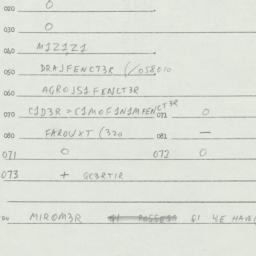 020 0
030 0
040 M1Z1Z1
050 DRAJFENCT3R (/058,010
060 AGROJS1FENCT3R
070 C1D3R = C1MOF1N1MFENCT3R 071 0
080 FAROUXT (320 081 —
071 0 072 0
073 + GC3RTIR
MIROM3R Q1 4E HAVE